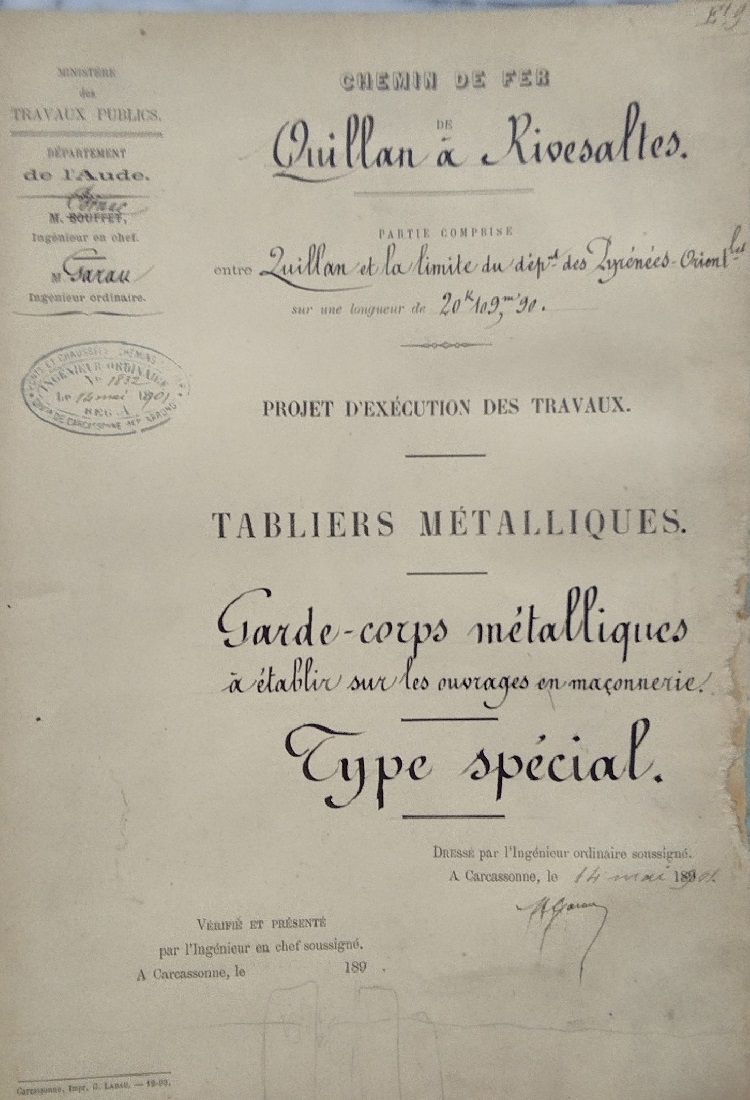 MINISTÈRE
des
TRAVAUX PUBLICS.
DÉPARTEMENT
de l'Aude.
M. BOUFFET,
Ingénieur en chef.
M Garau
Ingénieur ordinaire.
PONTS ET CHAUSSÉES
INGÉNIEUR-ORDINAIRE
No 1832
Le 14 mai 1901
CHEMIN DE FER
DE
Quillan à Rivesaltes.
PARTIE COMPRISE
entre Quillan et la limite du dépt des Pyrénées-Orientles
sur une longueur de 20k109m,90.
PROJET D'EXÉCUTION DES TRAVAUX.
TABLIERS MÉTALLIQUES.
Garde-corps métalliques
à établir sur les ouvrages en maçonnerie.
Type spécial.
DRESSÉ par l'Ingénieur ordinaire soussigné.
A Carcassonne, le 14 mai 1901.
VÉRIFIÉ ET PRÉSENTÉ
par l'Ingénieur en chef soussigné.
A Carcassonne, le 189 .
Carcassonne, Impr. G.